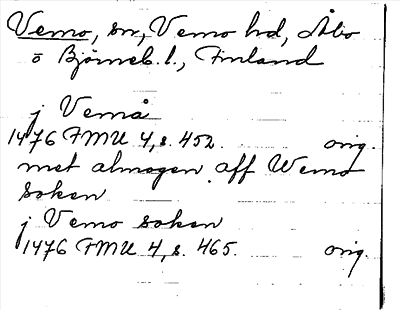 Vemo, sn, Vemo hd, Åbo
o Björneb. l., Finland
j Vemå
1476 FMU 4, s. 452. orig.
met almogen aff Wemo
soken
j Vemo soken
1476 FMU 4, s. 465. orig.